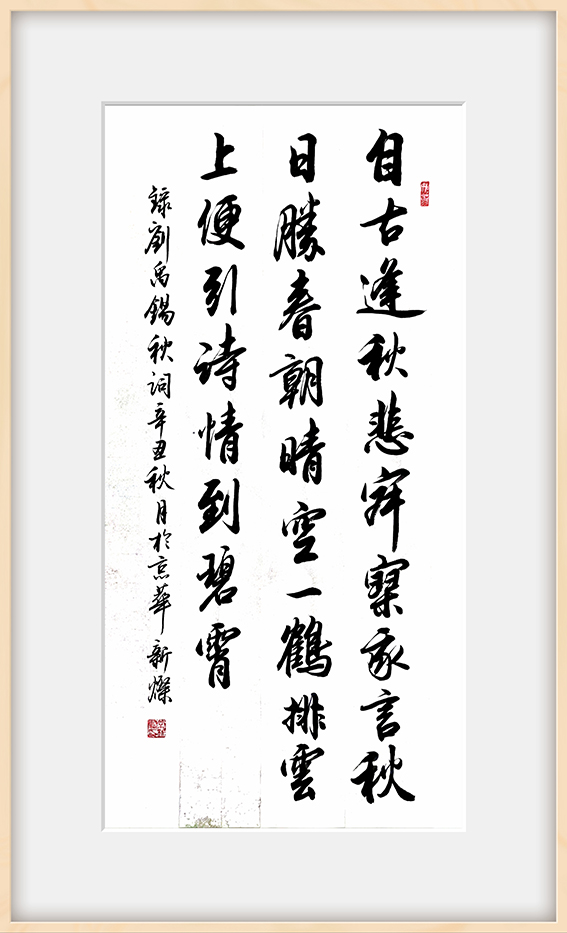 自古逢秋悲寂寥我言秋
日勝春朝晴空一鶴排雲
上便引詩情到碧霄
錄劉禹錫秋詞辛丑秋月於京華新燦